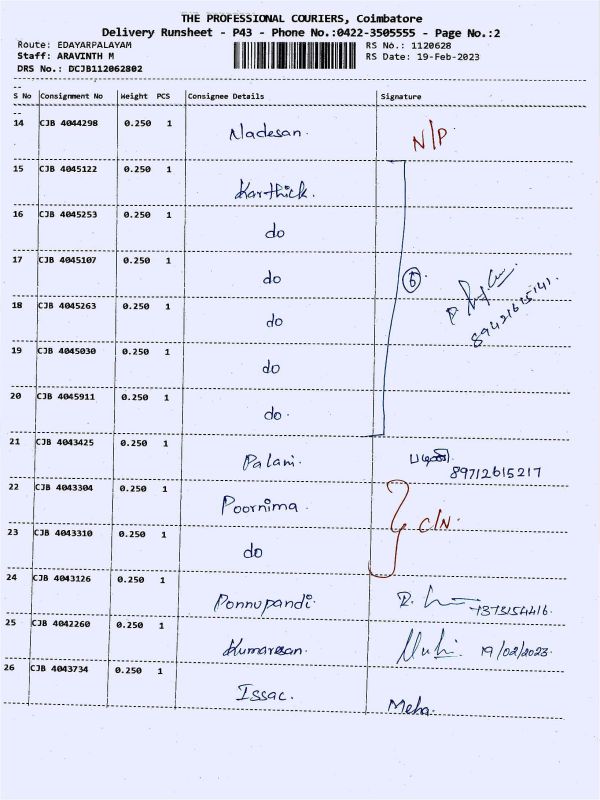 THE PROFESSIONAL COURIERS, Coimbatore
Delivery Runsheet - P43 - Phone No.:0422-3505555 - Page No.:2
Route: EDAYARPALAYAM RS No.: 1120628
Staff: ARAVINTH M RS Date: 19-Feb-2023
DRS No.: DCJB112062802
S No Consignment No Weight PCS Consignee Details Signature
14 CJB 4044298 0.250 1 Nadesan. N/P
15 CJB 4045122 0.250 1 Karthick.
16 CJB 4045253 0.250 1 do
17 CJB 4045107 0.250 1 do 6.
18 CJB 4045263 0.250 1 do 89421625141
19 CJB 4045030 0.250 1 do
20 CJB 4045911 0.250 1 do.
21 CJB 4043425 0.250 1 Palani. பழனி 89712615217
22 CJB 4043304 0.250 1 Poornima
23 CJB 4043310 0.250 1 do C/N.
24 CJB 4043126 0.250 1 Ponnupandi. 7373154416.
25 CJB 4042260 0.250 1 Kumaresan. 19/02/2023
26 CJB 4043734 0.250 1 Issac. Meha.